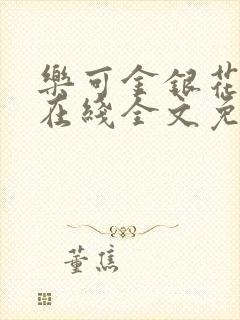 樂可金銀花
在綫全文免
董焦